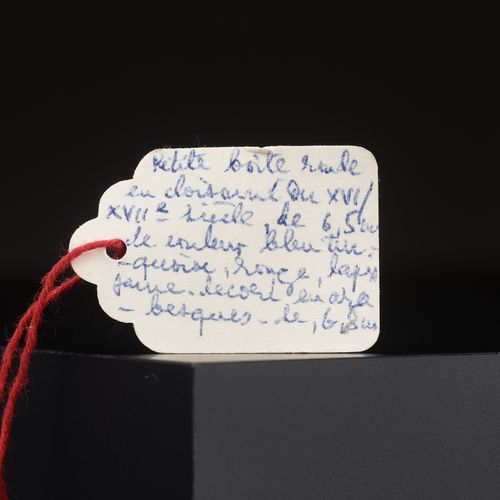 Petite boîte ronde
en cloisonné du XVI/
XVIIe siècle, de 6,5 cm
de couleur bleu tur-
-quoise, rouge, lapis
jaune. décoré en ara
- besques - de, 6,5 cm